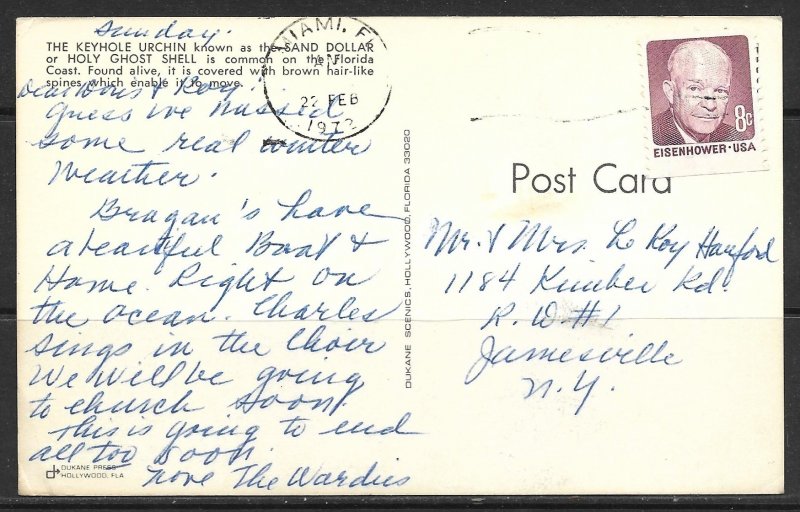 Sunday.
THE KEYHOLE URCHIN known as the SAND DOLLAR
or HOLY GHOST SHELL is common on the Florida
Coast. Found alive, it is covered with brown hair-like
spines which enable it to move.
Dear Doris & Roy
Guess we missed
some real winter
weather.
Bragan's have
a beautiful Boat &
Home. Right on
the ocean. Charles
sings in the Choir
We will be going
to church soon.
This is going to end
all too soon.
Love The Wardies
DUKANE PRESS
HOLLYWOOD, FLA
DUKANE SCENICS, HOLLYWOOD, FLORIDA 33020
MIAMI, F
22 FEB
8c
EISENHOWER·USA
Post Card
Mr. & Mrs. Le Roy Hanford
1184 Kimber Rd.
R. D #1
Jamesville
N.Y.